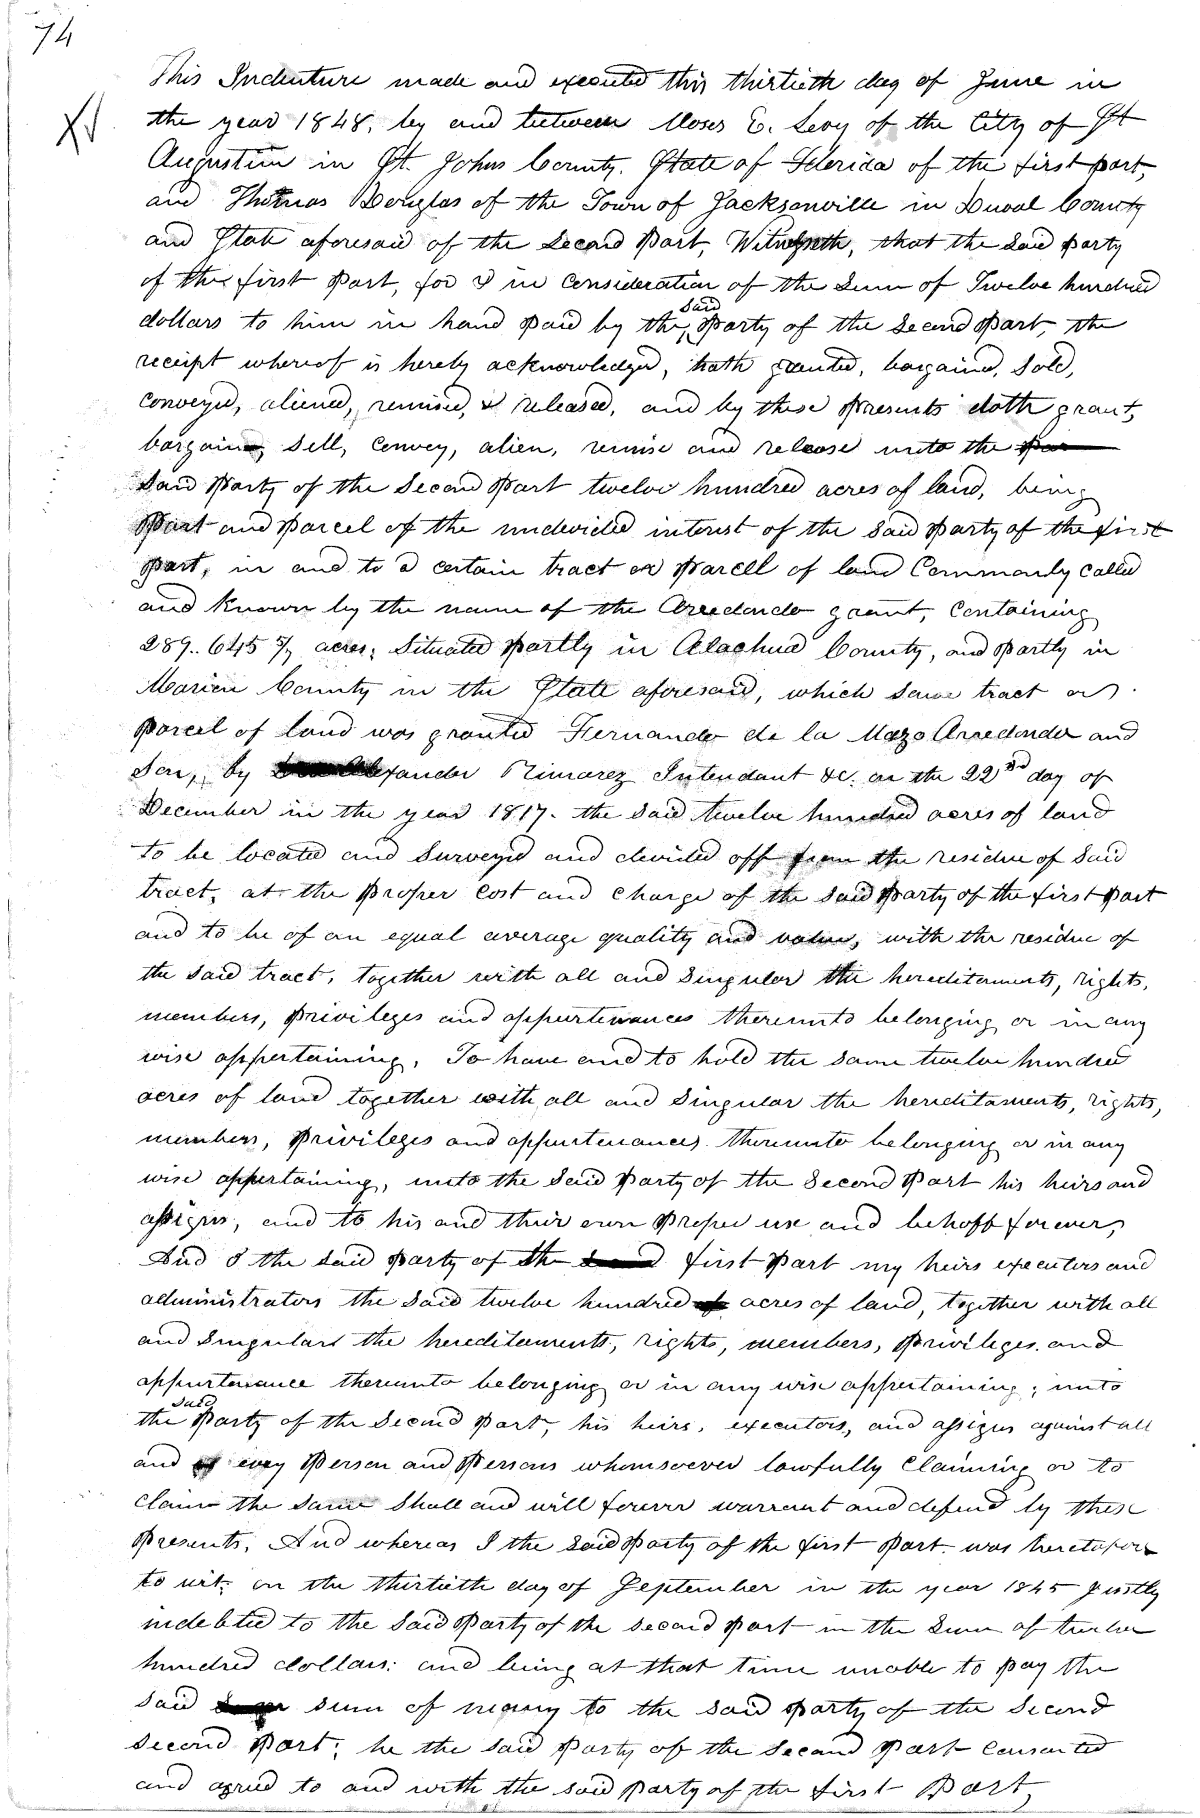 74
This Indenture made and executed this thirtieth day of June in
the year 1848, by and between Moses E. Levy of the City of St
Augustin in St. Johns County. State of Florida of the first part,
and Thomas Douglas of the Town of Jacksonville in Duval County
and State aforesaid of the Second Part, Witnesseth, that the Said Party
of the first Part, for & in Consideration of the Sum of Twelve hundred
dollars to him in hand paid by the said Party of the Second Part, the
receipt whereof is hereby acknowledged, hath granted, bargained, Sold,
conveyed, aliened, remised, & released, and by these Presents doth grant,
bargain, Sell, Convey, alien, remise and release unto the Par
Said Party of the Second Part twelve hundred acres of land, being
Part and Parcel of the undevided interest of the Said Party of the first
Part, in and to a certain tract or Parcell of land Commonly Called
and Known by the name of the Arredondo grant, Containing
289..645 5/7 acres; Situated Partly in Alachua County, and Partly in
Marion County in the State aforesaid, which Same tract or
Parcel of land was granted Fernando de la Maza Arredondo and
Son, by Alexander Rimarez Intendant &c. on the 22nd day of
December in the year 1817. the Said twelve hundred acres of land
to be located and Surveyed and devided off from the residue of Said
tract, at the Proper Cost and Charge of the Said Party of the first Part
and to be of an equal average quality and value, with the residue of
the Said tract, together with all and Singular the hereditaments, rights,
members, Privileges and appurtenances thereunto belonging or in any
wise appertaining, To have and to hold the Same twelve hundred
acres of land together with all and Singular the hereditaments, rights,
members, Privileges and appurtenances thereunto belonging or in any
wise appertaining, unto the Said Party of the Second Part his heirs and
assigns, and to his and their own Proper use and behoff forever,
And I the Said Party of the first Part my heirs executors and
administrators the Said twelve hundred acres of land, together with all
and Singular the hereditaments, rights, members, Privileges and
appurtenance thereunto belonging or in any wise appertaining; unto
the said Party of the Second Part, his heirs, executors, and assigns against all
and every Person and Persons whomsoever lawfully Claiming or to
Claim the Same Shall and will forever warrant and defend by these
Presents. And whereas I the Said Party of the first Part was heretofore
to wit: on the thirtieth day of September in the year 1845 Justly
indebted to the Said Party of the Second Part in the Sum of twelve
hundred dollars: and being at that time unable to pay the
Said Sum of money to the Said Party of the Second
Second Part; he the Said Party of the Second Part Consented
and agreed to and with the Said Party of the first Part,